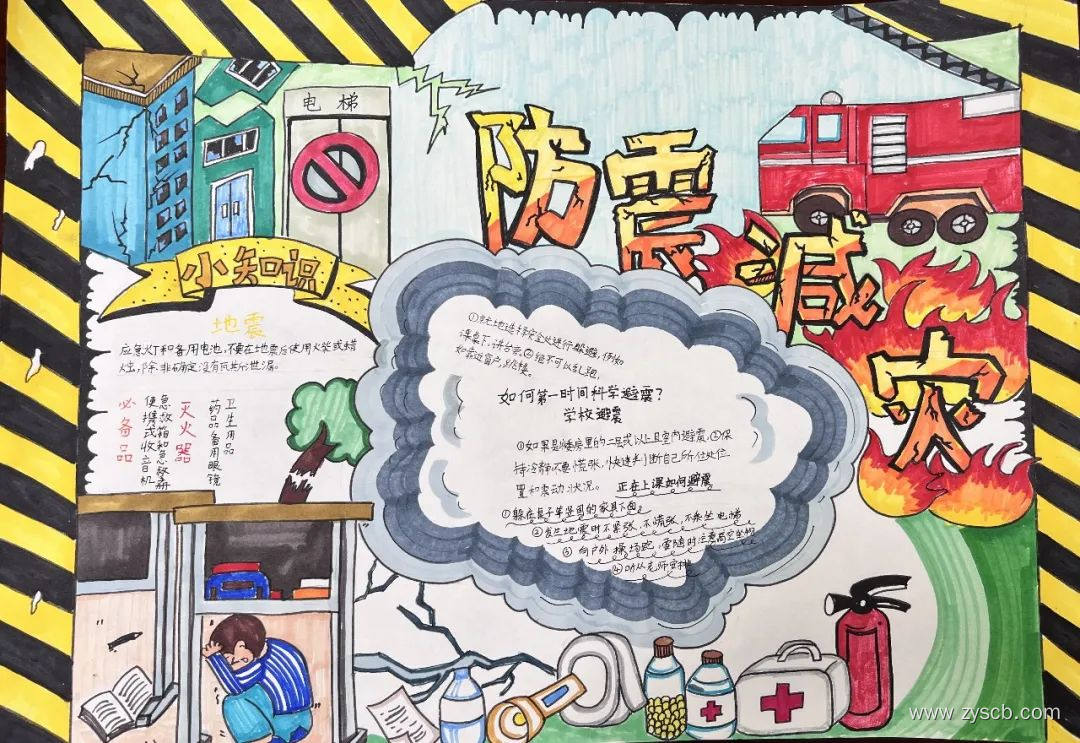 电梯
防震减灾
小知识
地震
应急灯和备用电池,不要在地震后使用火柴或蜡
烛,除非确定没有瓦斯泄漏。
必备品
便携式收音机
急救箱和急救
灭火器
药品备用眼镜
卫生用品
①就地选择安全处进行躲避,例如
课桌下,讲台旁②绝不可以乱跑,
如靠近窗户,跳楼。
如何第一时间科学避震?
学校避震
①如果是楼房里的二层或以上且室内避震,②保
持冷静不要慌张,快速判断自己所在处位
置和震动状况。
正在上课如何避震
①躲底桌子等坚固的家具下面
②发生地震时不紧张,不慌张,不乘坐电梯
③向户外操场跑,需随时注意高空坠物
④听从老师安排
www.zyscb.com